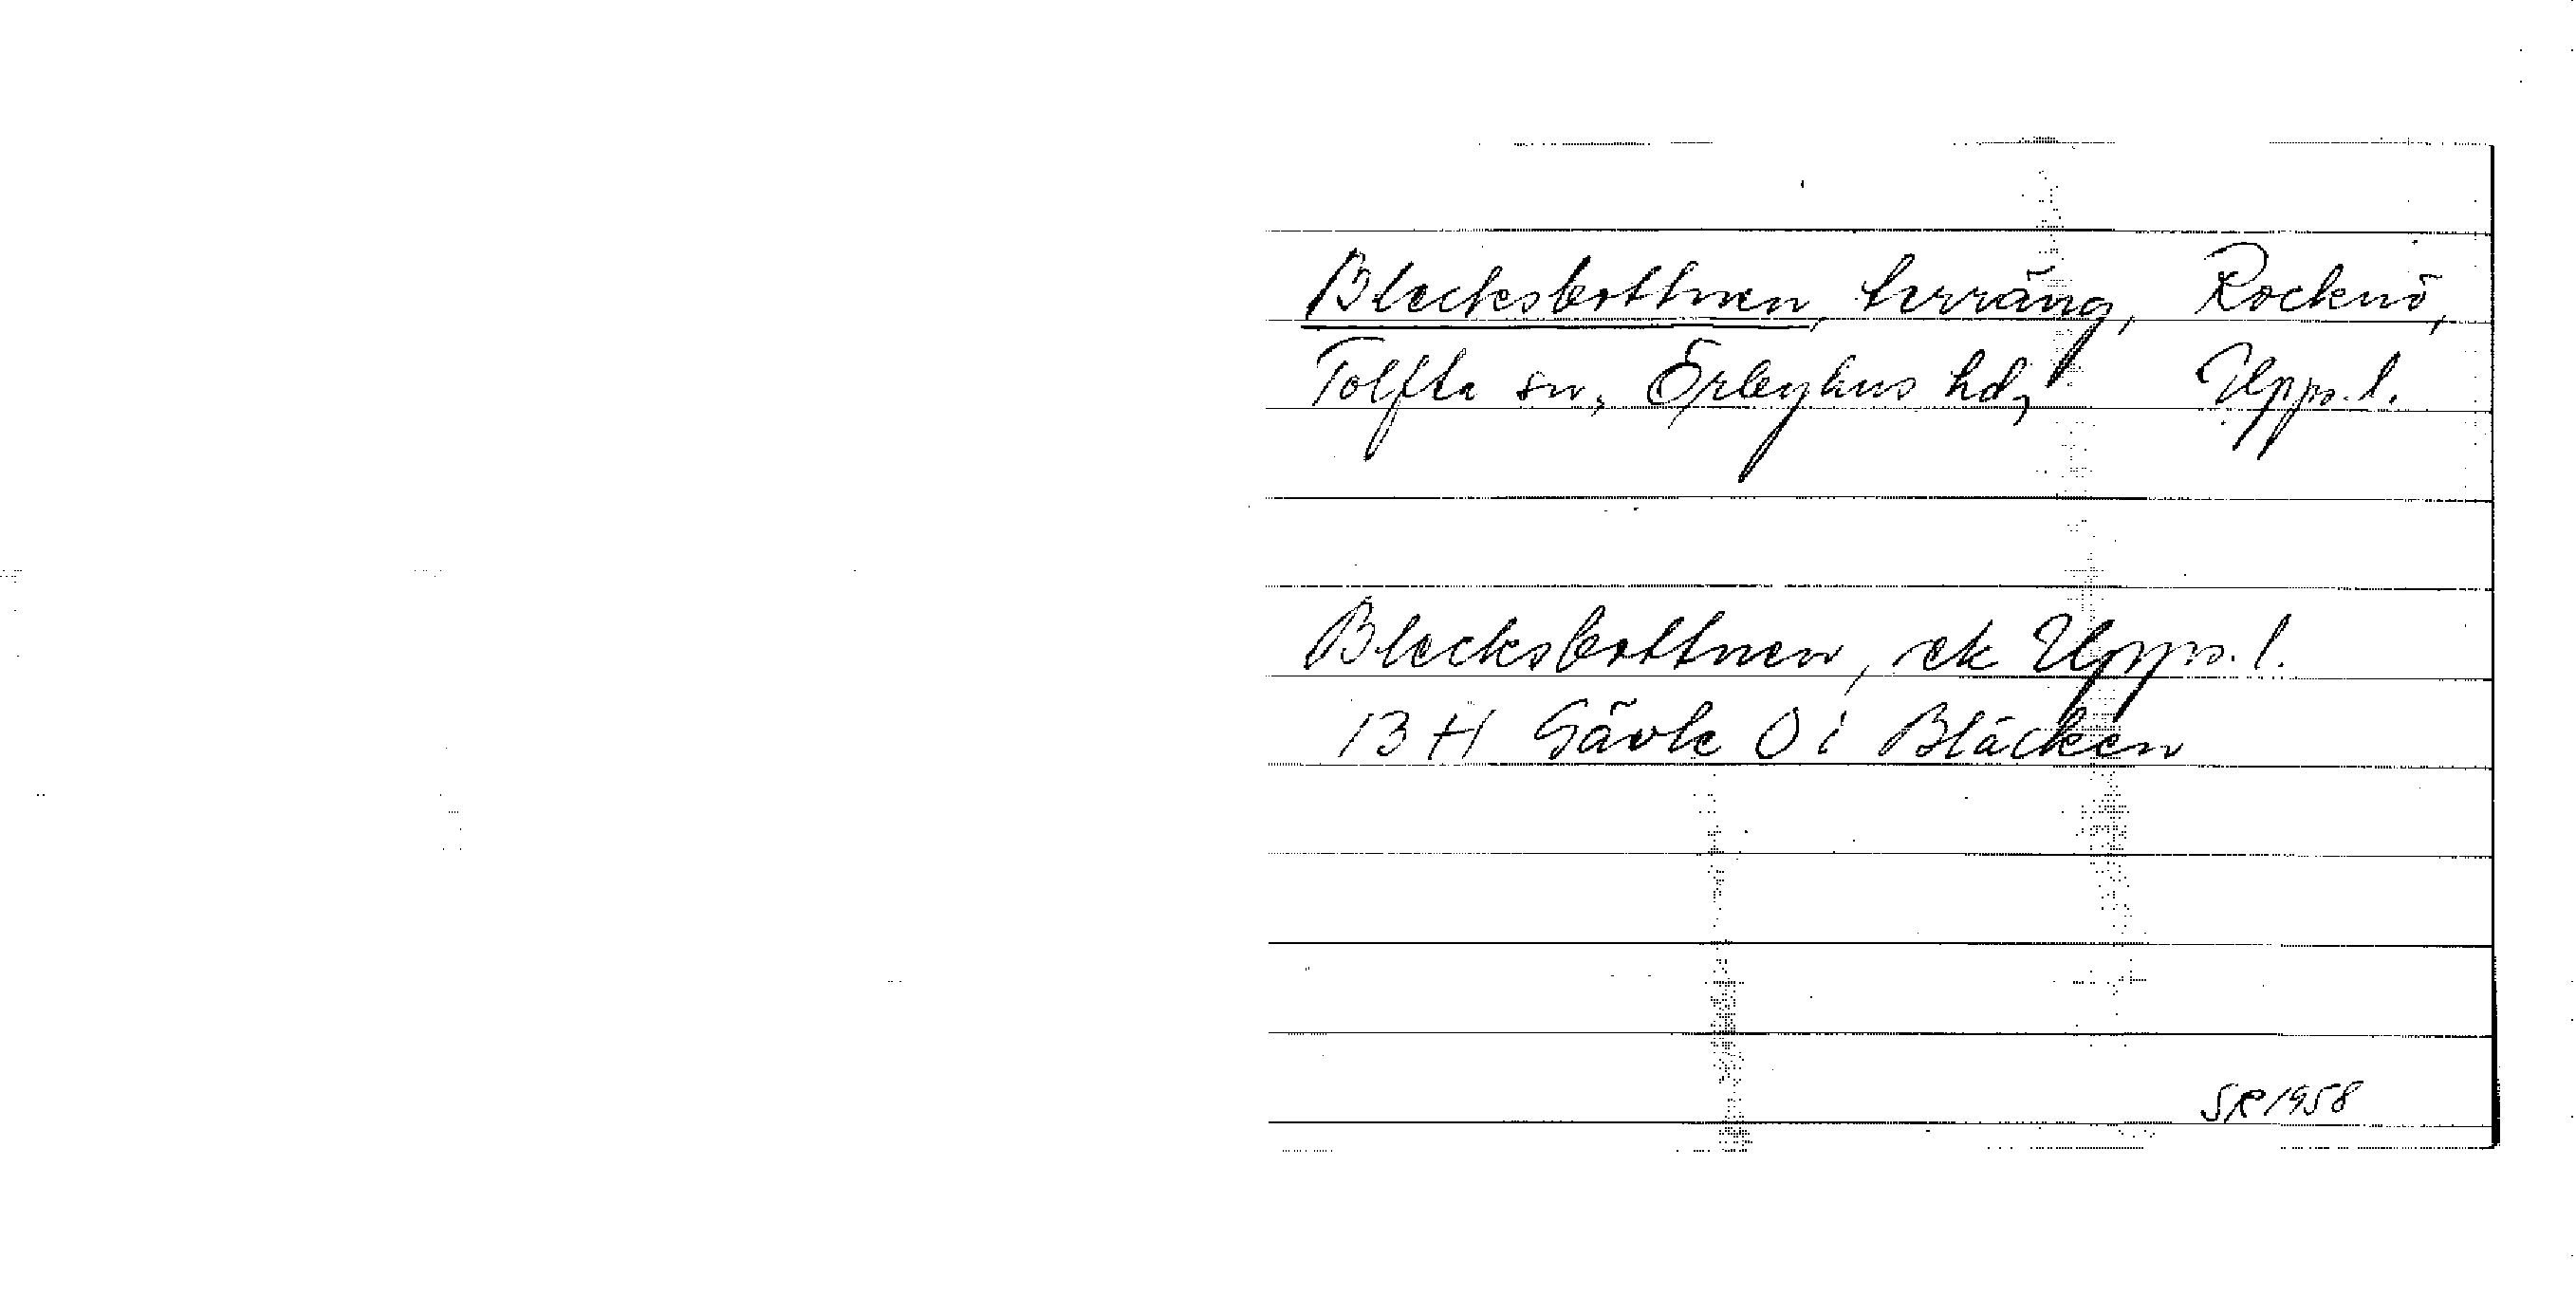 Blecksbottnen, terräng, Rocknö,
Tolfta sn, Örbyhus hd, Upps. l.
Blecksbottnen, ek Upps. l.
13 H Gävle O i Bläcken
SR 1958